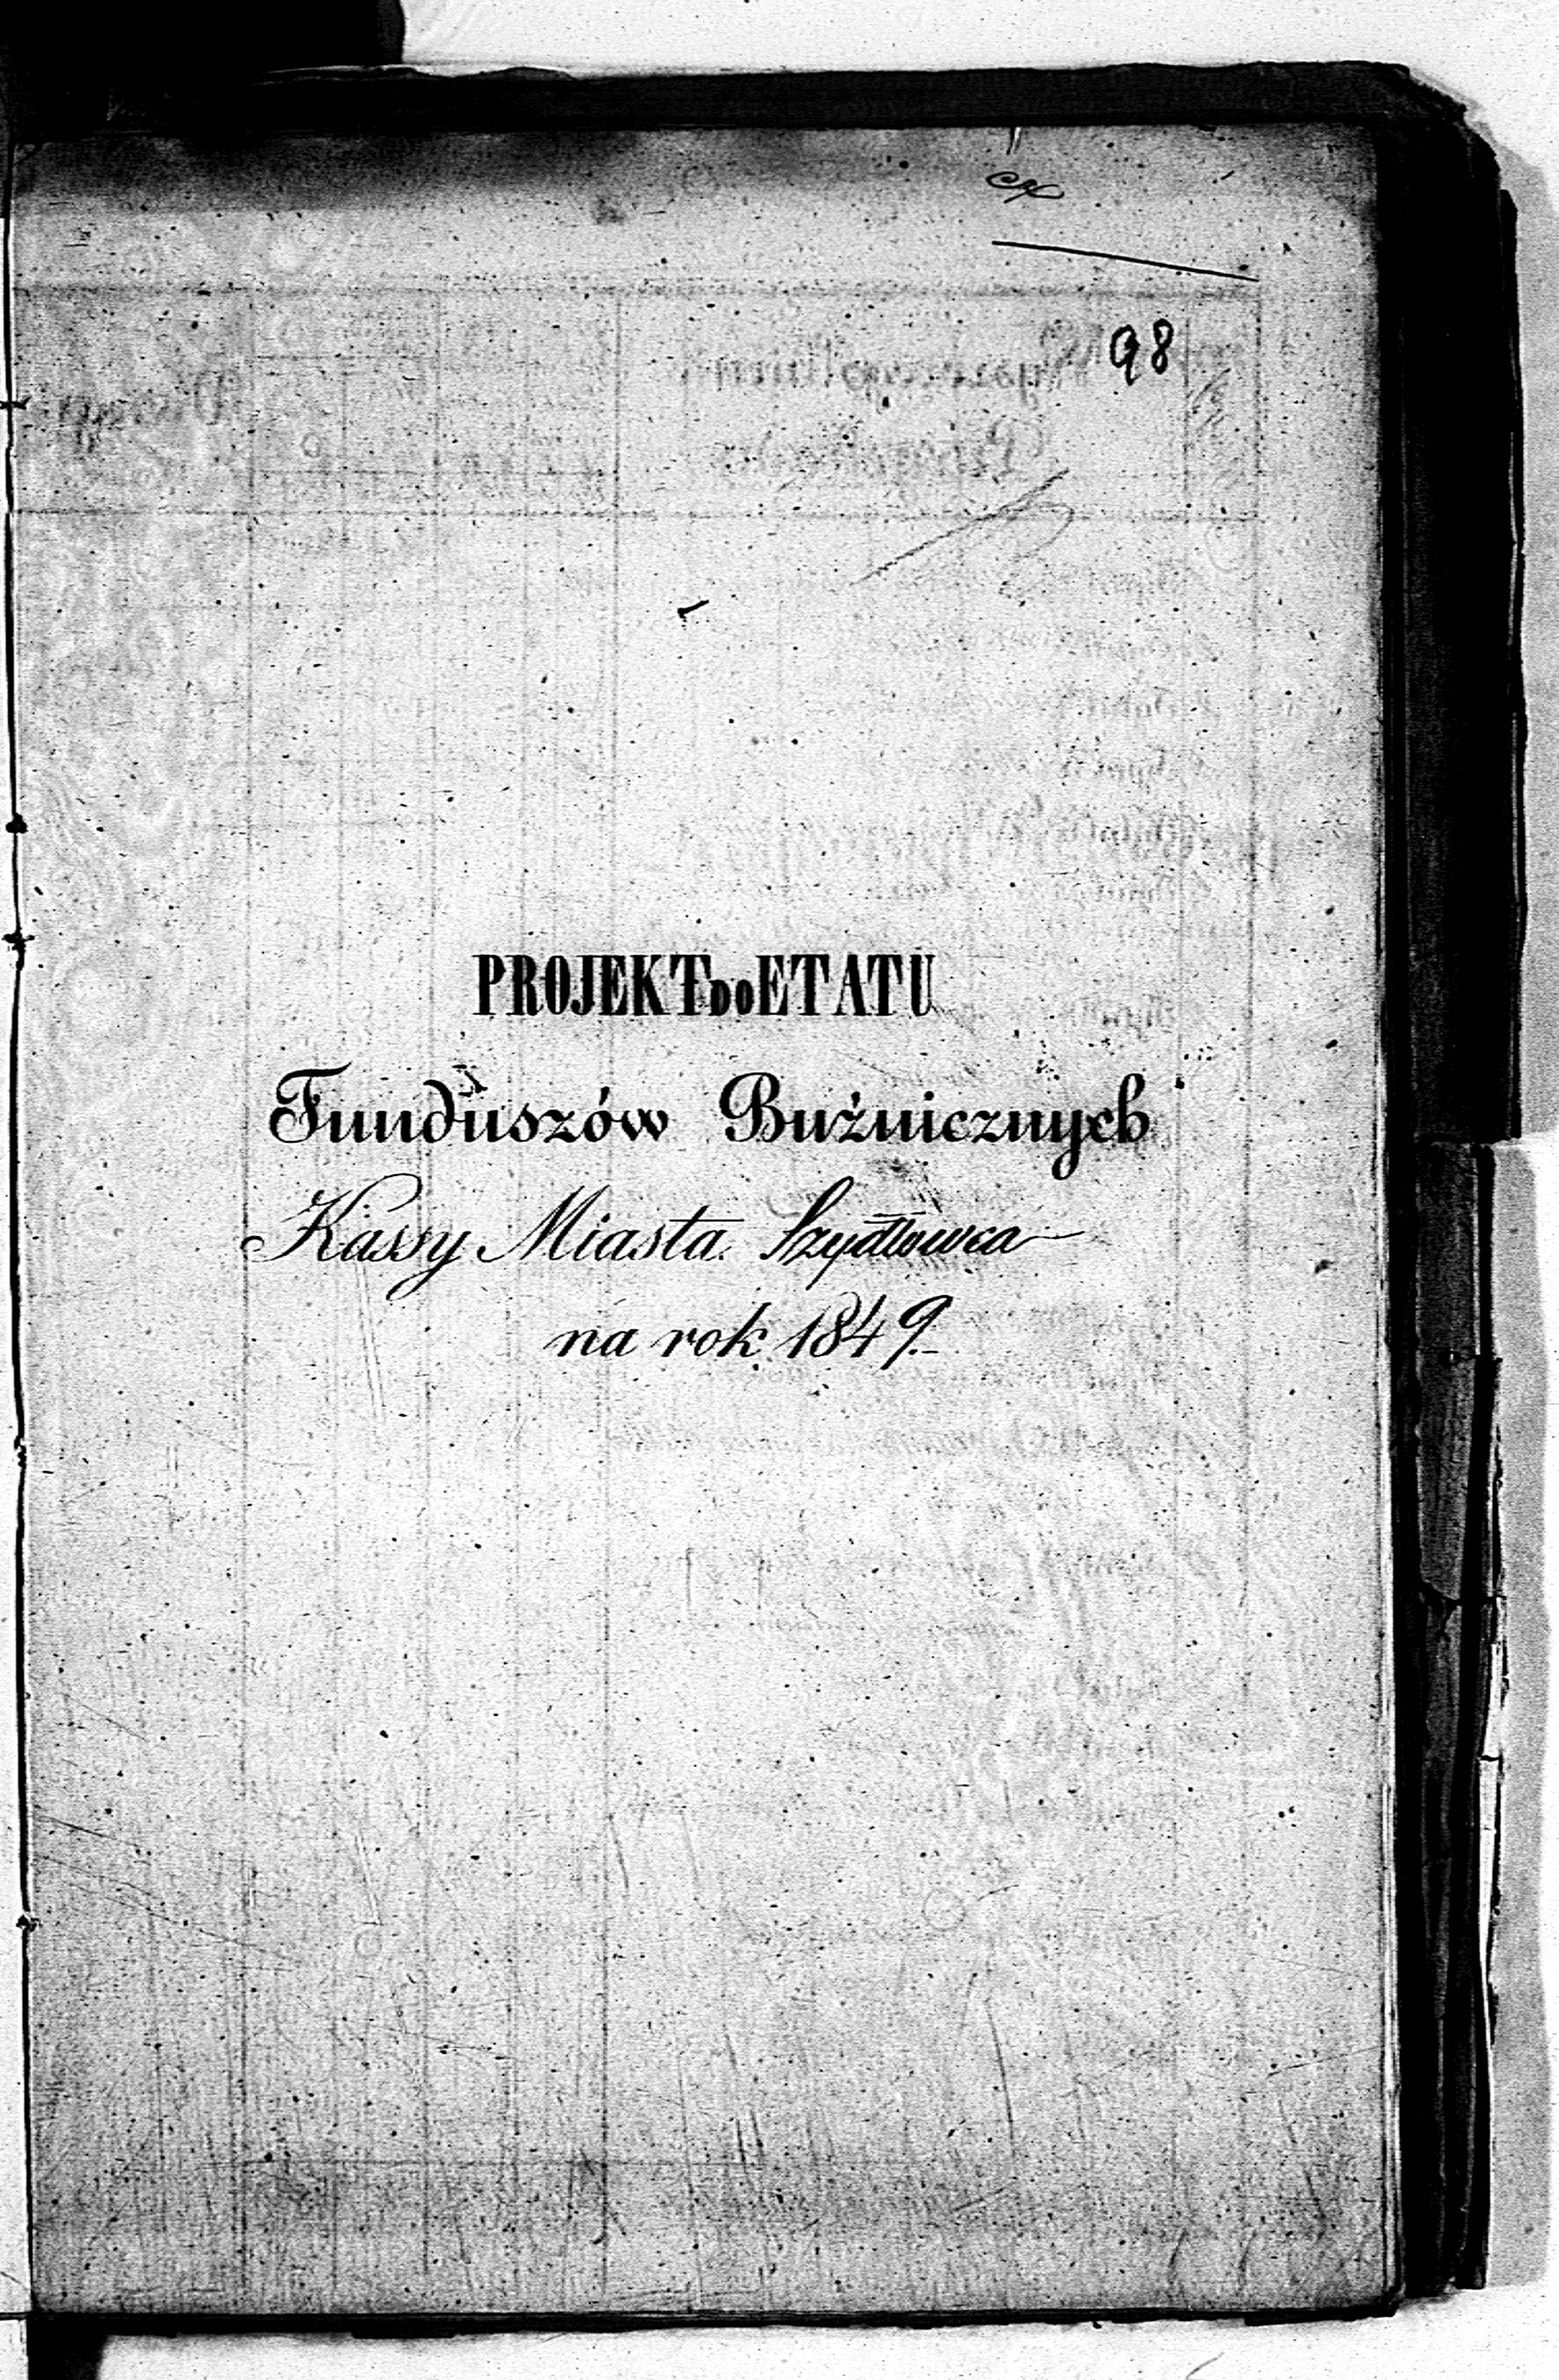 98
PROJEKT DO ETATU
Funduszów Buźnicznych
Kassy Miasta Szydłowca
na rok 1849.